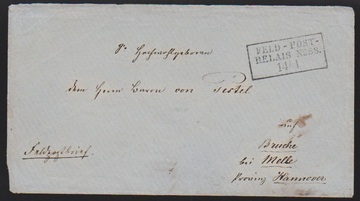 FELD-POST-
RELAIS No. 55.
14/1
Sr. Hochwohlgeboren
dem Herrn Baron von Pestel
auf
Bruche
bei Melle
Provinz Hannover
Feldpostbrief